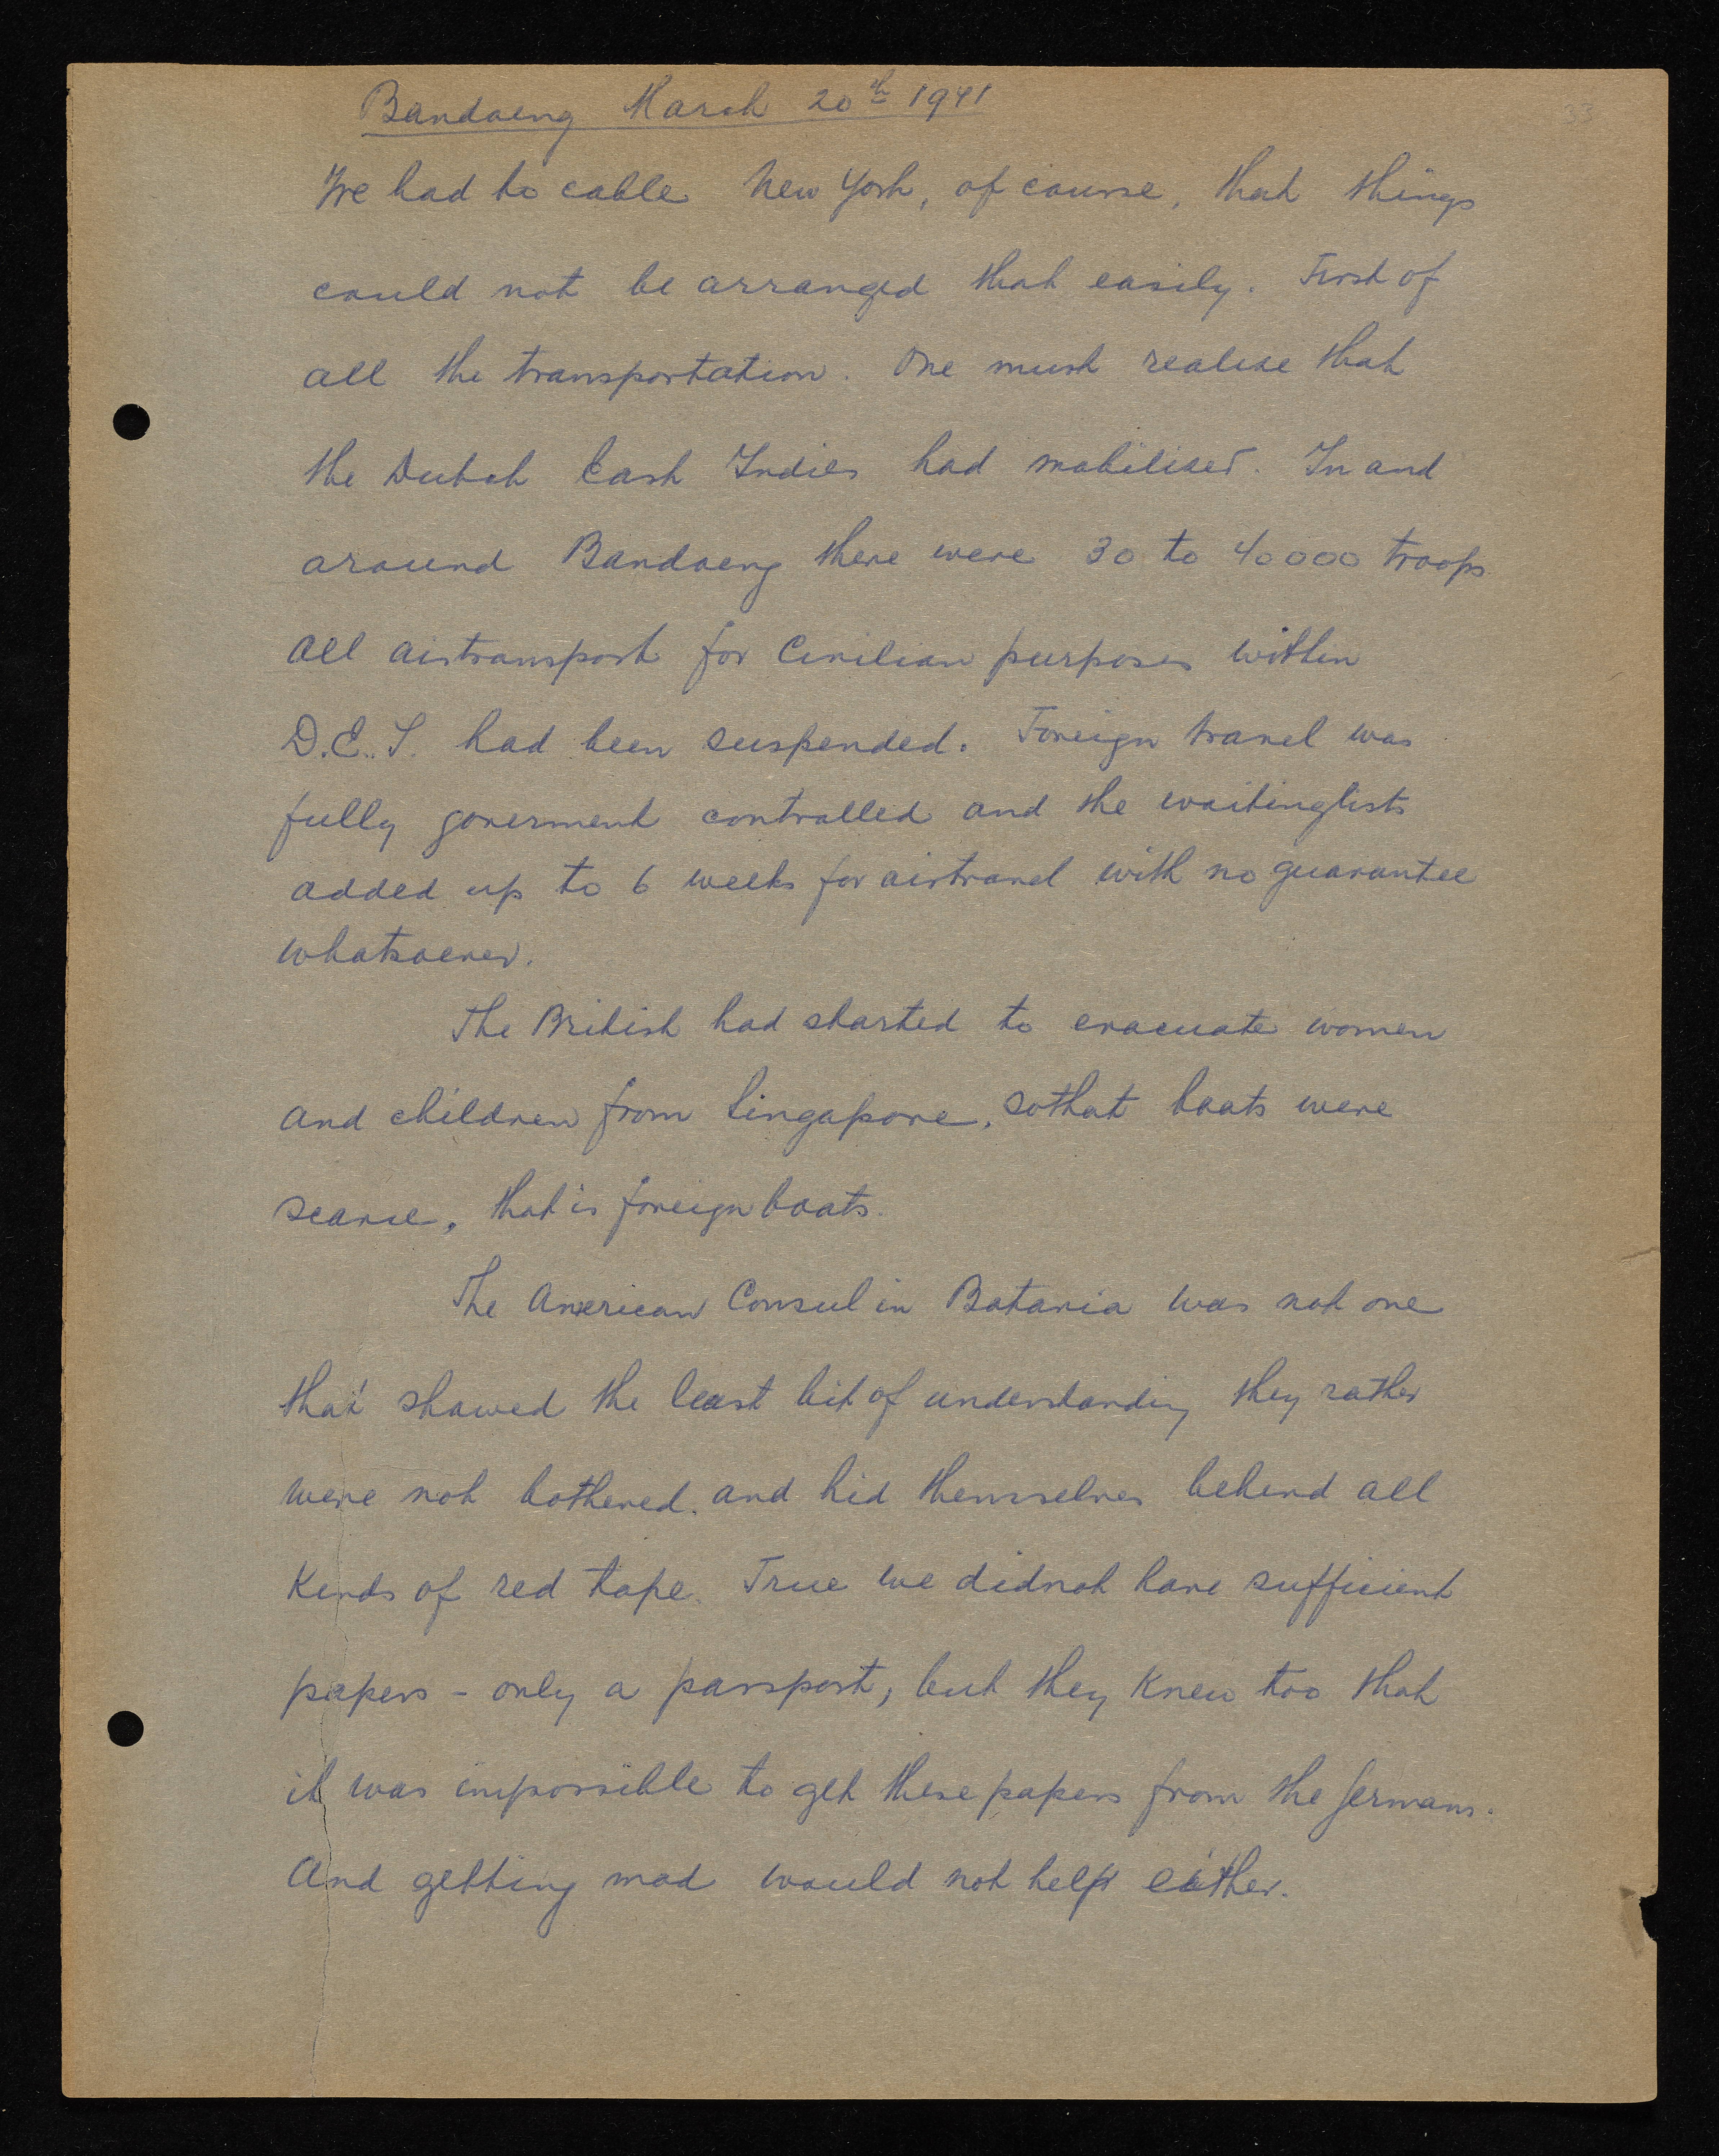 33
Bandoeng March 20th 1941
We had to cable New York, of course, that things
could not be arranged that easily. First of
all the transportation. One must realise that
the Dutch East Indies had mobilised. In and
around Bandoeng there were 30 to 40000 troops
All airtransport for Civilian purposes within
D.E.I. had been suspended. Foreign travel was
fully goverment controlled and the waitinglists
added up to 6 weeks for airtravel with no guarantee
whatsoever.
The British had started to evacuate women
and children from Singapore, sothat boats were
scarse, that is foreign boats.
The American Consul in Batavia was not one
that showed the least bit of understanding they rather
were not bothered. and hid themselves behind all
kinds of red tape. True we didnot have sufficient
papers - only a passport, but they knew too that
it was impossible to get these papers from the Germans.
And getting mad would not help either.